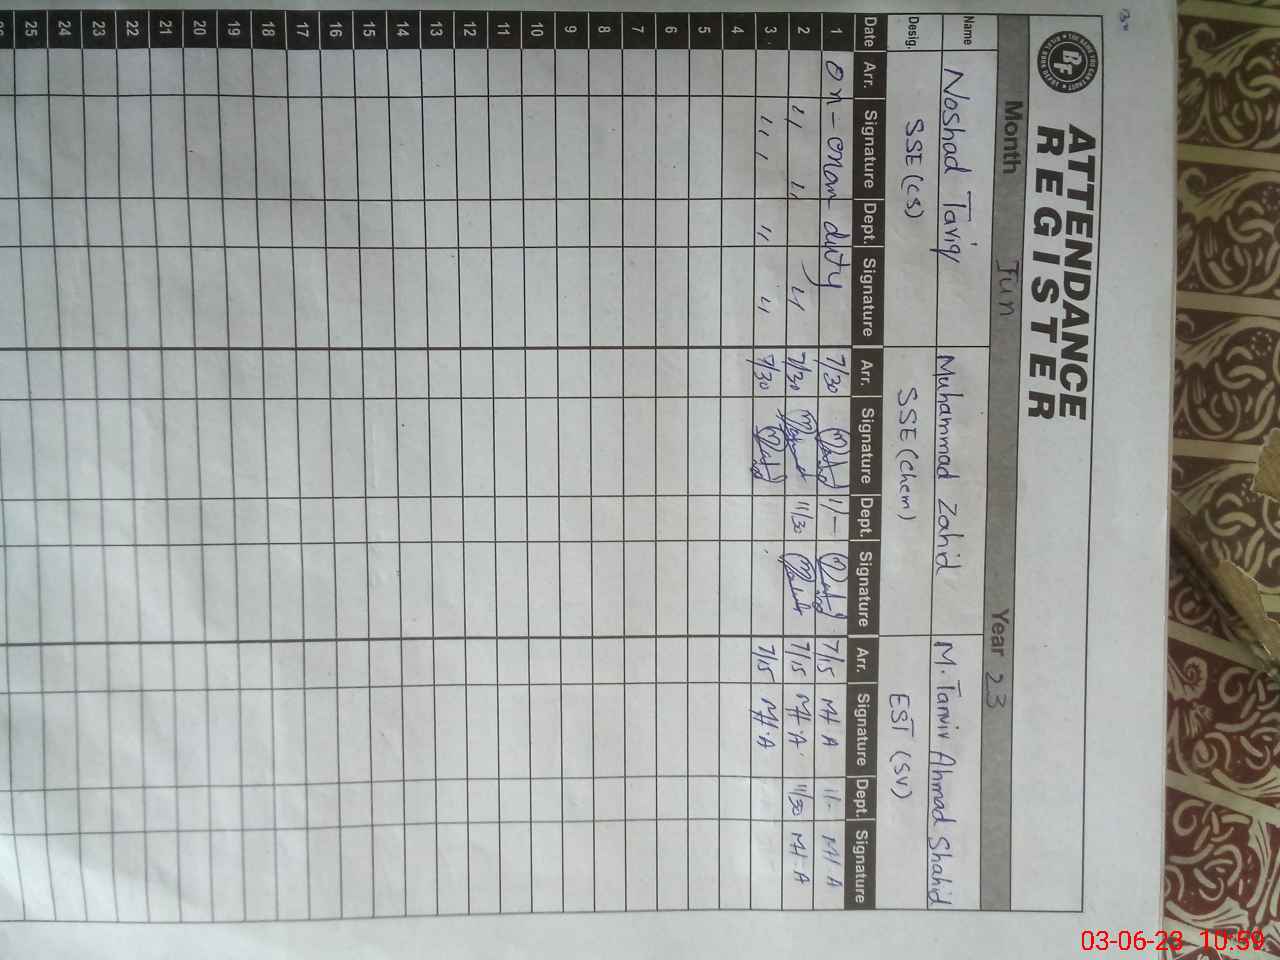 ATTENDANCE
REGISTER
BF
Month Jun Year 23
Name Noshad Tariq Muhammad Zahid M. Tanvir Ahmad Shahid
Desig. SSE(CS) SSE(Chem) EST (SV)
Date Arr. Signature Dept. Signature Arr. Signature Dept. Signature Arr. Signature Dept. Signature
1 On-exam duty 7/30 11/- 7/15 MH A 11/- MH A
2 " " " 7/30 11/30 7/15 MH.A 11/30 MH-A
3 " " " " 7/30 7/15 MH.A
4
5
6
7
8
9
10
11
12
13
14
15
16
17
18
19
20
21
22
23
24
25
03-06-23 10:59